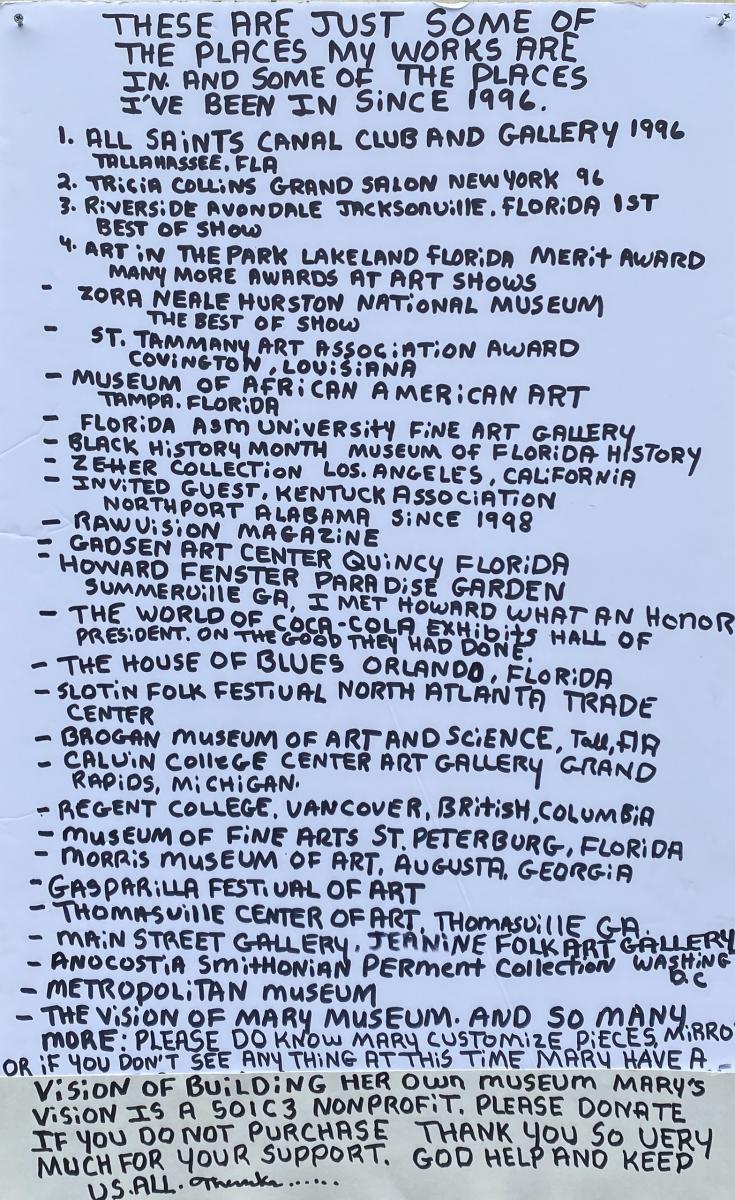 THESE ARE JUST SOME OF
THE PLACES MY WORKS ARE
IN. AND SOME OF THE PLACES
I'VE BEEN IN SINCE 1996.
1. ALL SAINTS CANAL CLUB AND GALLERY 1996
TALLAHASSEE, FLA
2. TRICIA COLLINS GRAND SALON NEW YORK 96
3. RIVERSIDE AVONDALE JACKSONVILLE. FLORIDA 1ST
BEST OF SHOW
4. ART IN THE PARK LAKELAND FLORIDA MERIT AWARD
MANY MORE AWARDS AT ART SHOWS
- ZORA NEALE HURSTON NATIONAL MUSEUM
THE BEST OF SHOW
- ST. TAMMANY ART ASSOCIATION AWARD
COVINGTON, LOUISIANA
- MUSEUM OF AFRICAN AMERICAN ART
TAMPA. FLORIDA
- FLORIDA A&M UNIVERSITY FINE ART GALLERY
- BLACK HISTORY MONTH MUSEUM OF FLORIDA HISTORY
- ZEHER COLLECTION LOS. ANGELES, CALIFORNIA
- INVITED GUEST, KENTUCK ASSOCIATION
NORTHPORT ALABAMA SINCE 1998
- RAW VISION MAGAZINE
- GADSEN ART CENTER QUINCY FLORIDA
- HOWARD FENSTER PARADISE GARDEN
SUMMERVILLE GA, I MET HOWARD WHAT AN HONOR
- THE WORLD OF COCA-COLA EXHIBITS HALL OF
PRESIDENT. ON THE GOOD THEY HAD DONE.
- THE HOUSE OF BLUES ORLANDO, FLORIDA
- SLOTIN FOLK FESTIVAL NORTH ATLANTA TRADE
CENTER
- BROGAN MUSEUM OF ART AND SCIENCE, Tall, FlA
- CALVIN COLLEGE CENTER ART GALLERY GRAND
RAPIDS, MICHIGAN.
- REGENT COLLEGE, VANCOVER, BRITISH, COLUMBIA
- MUSEUM OF FINE ARTS ST. PETERBURG, FLORIDA
- MORRIS MUSEUM OF ART, AUGUSTA, GEORGIA
- GASPARILLA FESTIVAL OF ART
- THOMASVILLE CENTER OF ART, THOMASVILLE GA.
- MAIN STREET GALLERY, JEANINE FOLK ART GALLERY
- ANOCOSTIA SMITHONIAN PERMENT COLLECTION WASHING
D.C
- METROPOLITAN MUSEUM
- THE VISION OF MARY MUSEUM. AND SO MANY
MORE: PLEASE DO KNOW MARY CUSTOMIZE PIECES, MIRRO
OR IF YOU DON'T SEE ANY THING AT THIS TIME MARY HAVE A -
VISION OF BUILDING HER OWN MUSEUM MARY'S
VISION IS A 501C3 NONPROFIT. PLEASE DONATE
IF YOU DO NOT PURCHASE THANK YOU SO VERY
MUCH FOR YOUR SUPPORT. GOD HELP AND KEEP
US. ALL. Thanks......